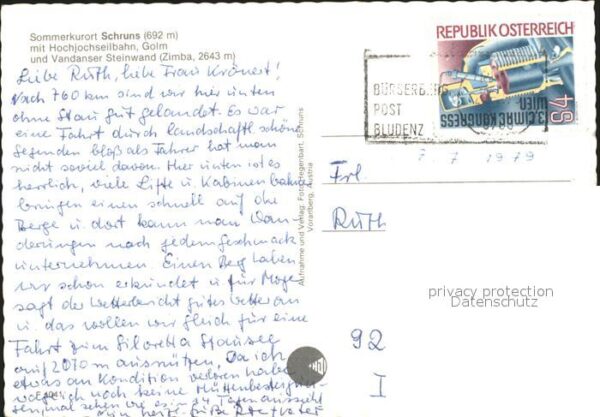 Sommerkurort Schruns (692 m)
mit Hochjochseilbahn, Golm
und Vandanser Steinwand (Zimba, 2643 m)
Liebe Ruth, liebe Frau Krönert!
Nach 760 km sind wir hier unten
ohne Stau gut gelandet. Es war
eine Fahrt durch landschaftl. schöne
Gegenden bloß als Fahrer hat man
nicht soviel davon. Hier unten ist es
herrlich, viele Lifte u. Kabinenbahn
bringen einen schnell auf die
Berge u. dort kann man Wan-
derungen nach jedem Geschmack
unternehmen. Einen Berg haben
wir schon erkundet u. für Morge
sagt der Wetterbericht gutes Wetter an
u. das wollen wir gleich für eine
Fahrt zum Silvretta Stausee
auf 2070 m ausnützen. Da ich
etwas an Kondition verloren habe
noch keine
mal sehen wie es in 14 Tagen aussieht
Aufnahme und Verlag: Foto Hegenbart, Schruns
Vorarlberg, Austria
REPUBLIK ÖSTERREICH
3. CIMAC KONGRESS
WIEN
S4
BÜRSERBERG
POST
BLUDENZ
7. 7. 1979
Frl.
Ruth
privacy protection
Datenschutz
92
I